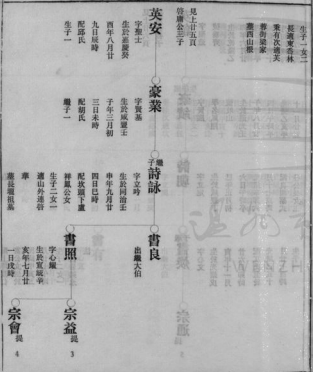 生子一女二
長適東香林
秉有次適芙
蓉街梁家
葬西山根
見上廿五頁
啓廉公三子
英安
字聖士
生於道光癸
酉年八月廿
九日辰時
配邱氏
生子一
豪業
字賢基
生於咸豐壬
子年三月初
三日未時
配胡氏
繼子一
繼子
詩詠
字立吟
生於同治壬
申年九月廿
四日巳時
配坎頭下盧
祥鳳公女
生子二女一
適山外連啓
華
葬長壠祖墓
書良
出繼大伯
書照
字心曬
生於宣統辛
亥年七月廿
一日戌時
宗益
提
3
宗會
提
4